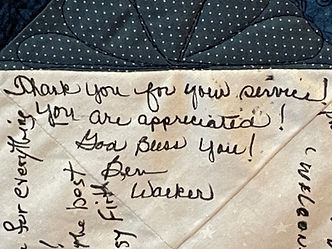 Thank you for your service!
You are appreciated!
God Bless You!
Ben
Walker
for everything
the best